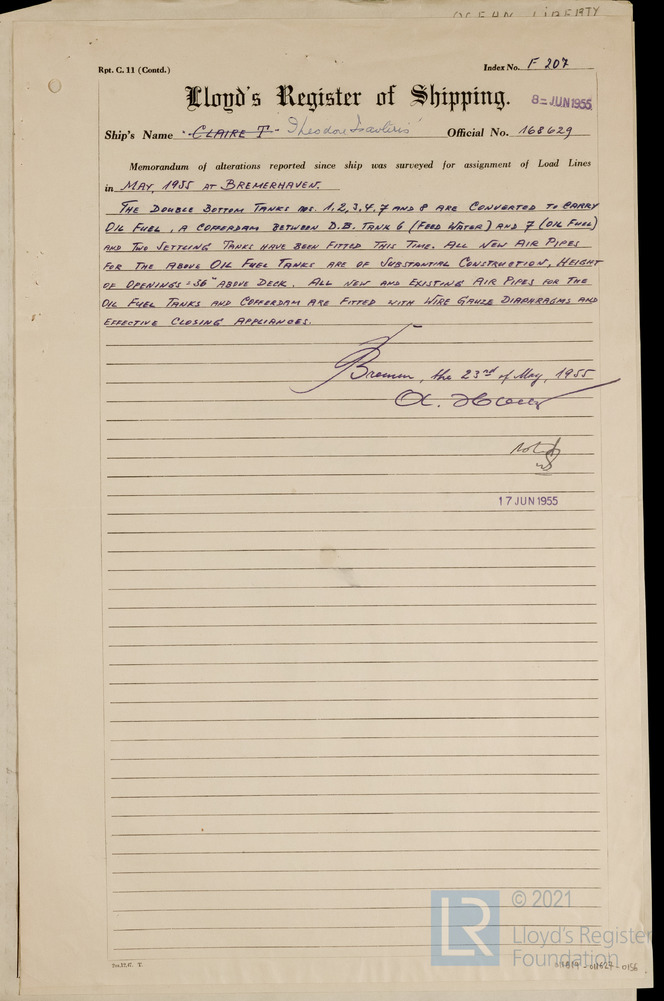 OCEAN LIBERTY
Rpt. C. 11 (Contd.)
Index No. F 207
Lloyd's Register of Shipping.
8 - JUN 1955
Ship's Name "CLAIRE T" Theodore Tsavliris"
Official No. 168629
Memorandum of alterations reported since ship was surveyed for assignment of Load Lines
in MAY, 1955 AT BREMERHAVEN.
THE DOUBLE BOTTOM TANKS NOS. 1, 2, 3, 4, 7 AND 8 ARE CONVERTED TO CARRY
OIL FUEL, A COFFERDAM BETWEEN D.B. TANK 6 (FEED WATER) AND 7 (OIL FUEL)
AND TWO SETTLING TANKS HAVE BEEN FITTED THIS TIME. ALL NEW AIR PIPES
FOR THE ABOVE OIL FUEL TANKS ARE OF SUBSTANTIAL CONSTRUCTION, HEIGHT
OF OPENINGS = 36" ABOVE DECK. ALL NEW AND EXISTING AIR PIPES FOR THE
OIL FUEL TANKS AND COFFERDAM ARE FITTED WITH WIRE GAUZE DIAPHRAGMS AND
EFFECTIVE CLOSING APPLIANCES.
Bremen, the 23rd of May, 1955
Noted
17 JUN 1955
© 2021
LR
Lloyd's Register
Foundation